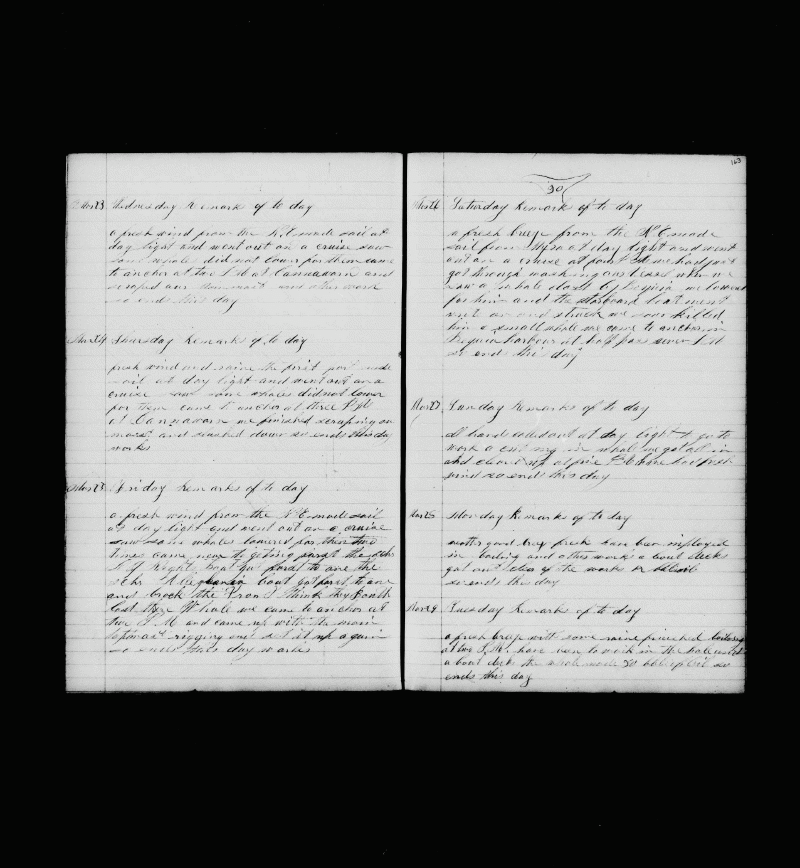 Mar 23 Wednesday Remark of to day
a fresh wind from the N.E. made sail at
day light and went out on a cruise saw
some whale did not lower for them came
to anchor at two P.M at Cannavarn and
scraped our and other work
so ends this day
Mar 24 Thursday Remarks of to day
fresh wind and raine the first part made
sail at day light and went out on a
cruise saw some whales did not lower
for them came to anchor at three P.M
at Cannavarn we finished scraping our
mast and slushed down so ends this day
works
Mar 25 Friday Remarks of to day
a fresh wind from the N.E. made sail
at day light and went out on a cruise
saw some whales lowered for them two
times came near to geting furst the Schr
boat got furst to one the
Schr boat got furst to one
and brock the Iron I think they both
lost there Whale we came to anchor at
two P.M and came up with the main
topmast rigging and set it up again
so ends this day works
163
30
Mar 26 Saturday Remark of to day
a fresh breeze from the N.E. made
sail from at day light and went
out on a cruise at we had just
got through washing our when we
saw a whale close we lowered
for him and the starboard boat went
and struck we soon killed
him a small whale we came to anchor in
harbour at half pass seven P.M
so ends this day
Mar 27 Sunday Remarks of to day
all hands called out at day light to go to
work a cuting in whale we got all in
and cleard up at five P.M fresh
wind so ends this day
Mar 28 Monday Remarks of to day
good breeze fresh have been imployed
in boiling and other work a bout decks
got
so ends this day
Mar 29 Tuesday Remarks of to day
a fresh breeze with some raine finished boiling
at two P.M. have to work in the
a bout decks the whale made 30 bbls of oil so
ends this day